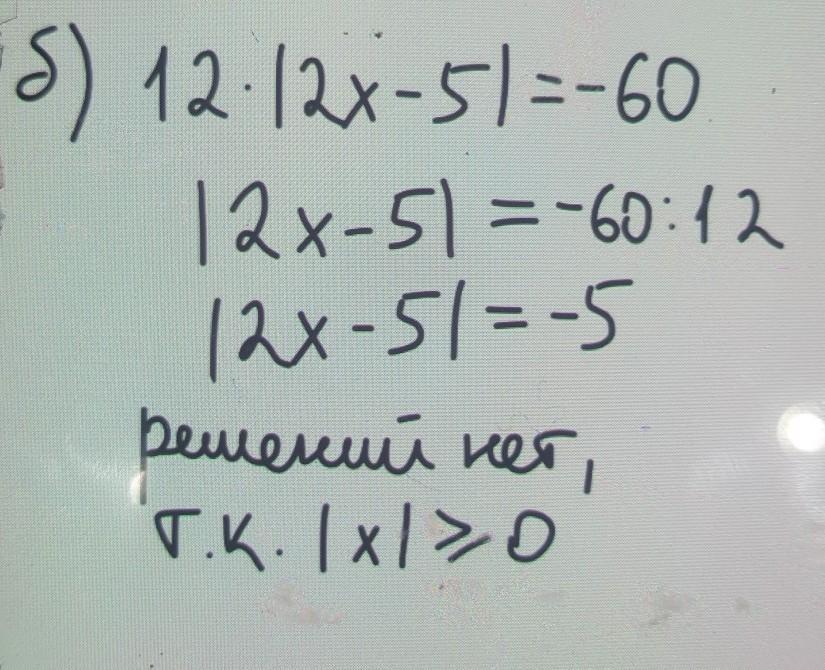 б) 12·|2x-5|=-60
|2x-5|=-60:12
|2x-5|=-5
решений нет,
т.к. |x|⩾0